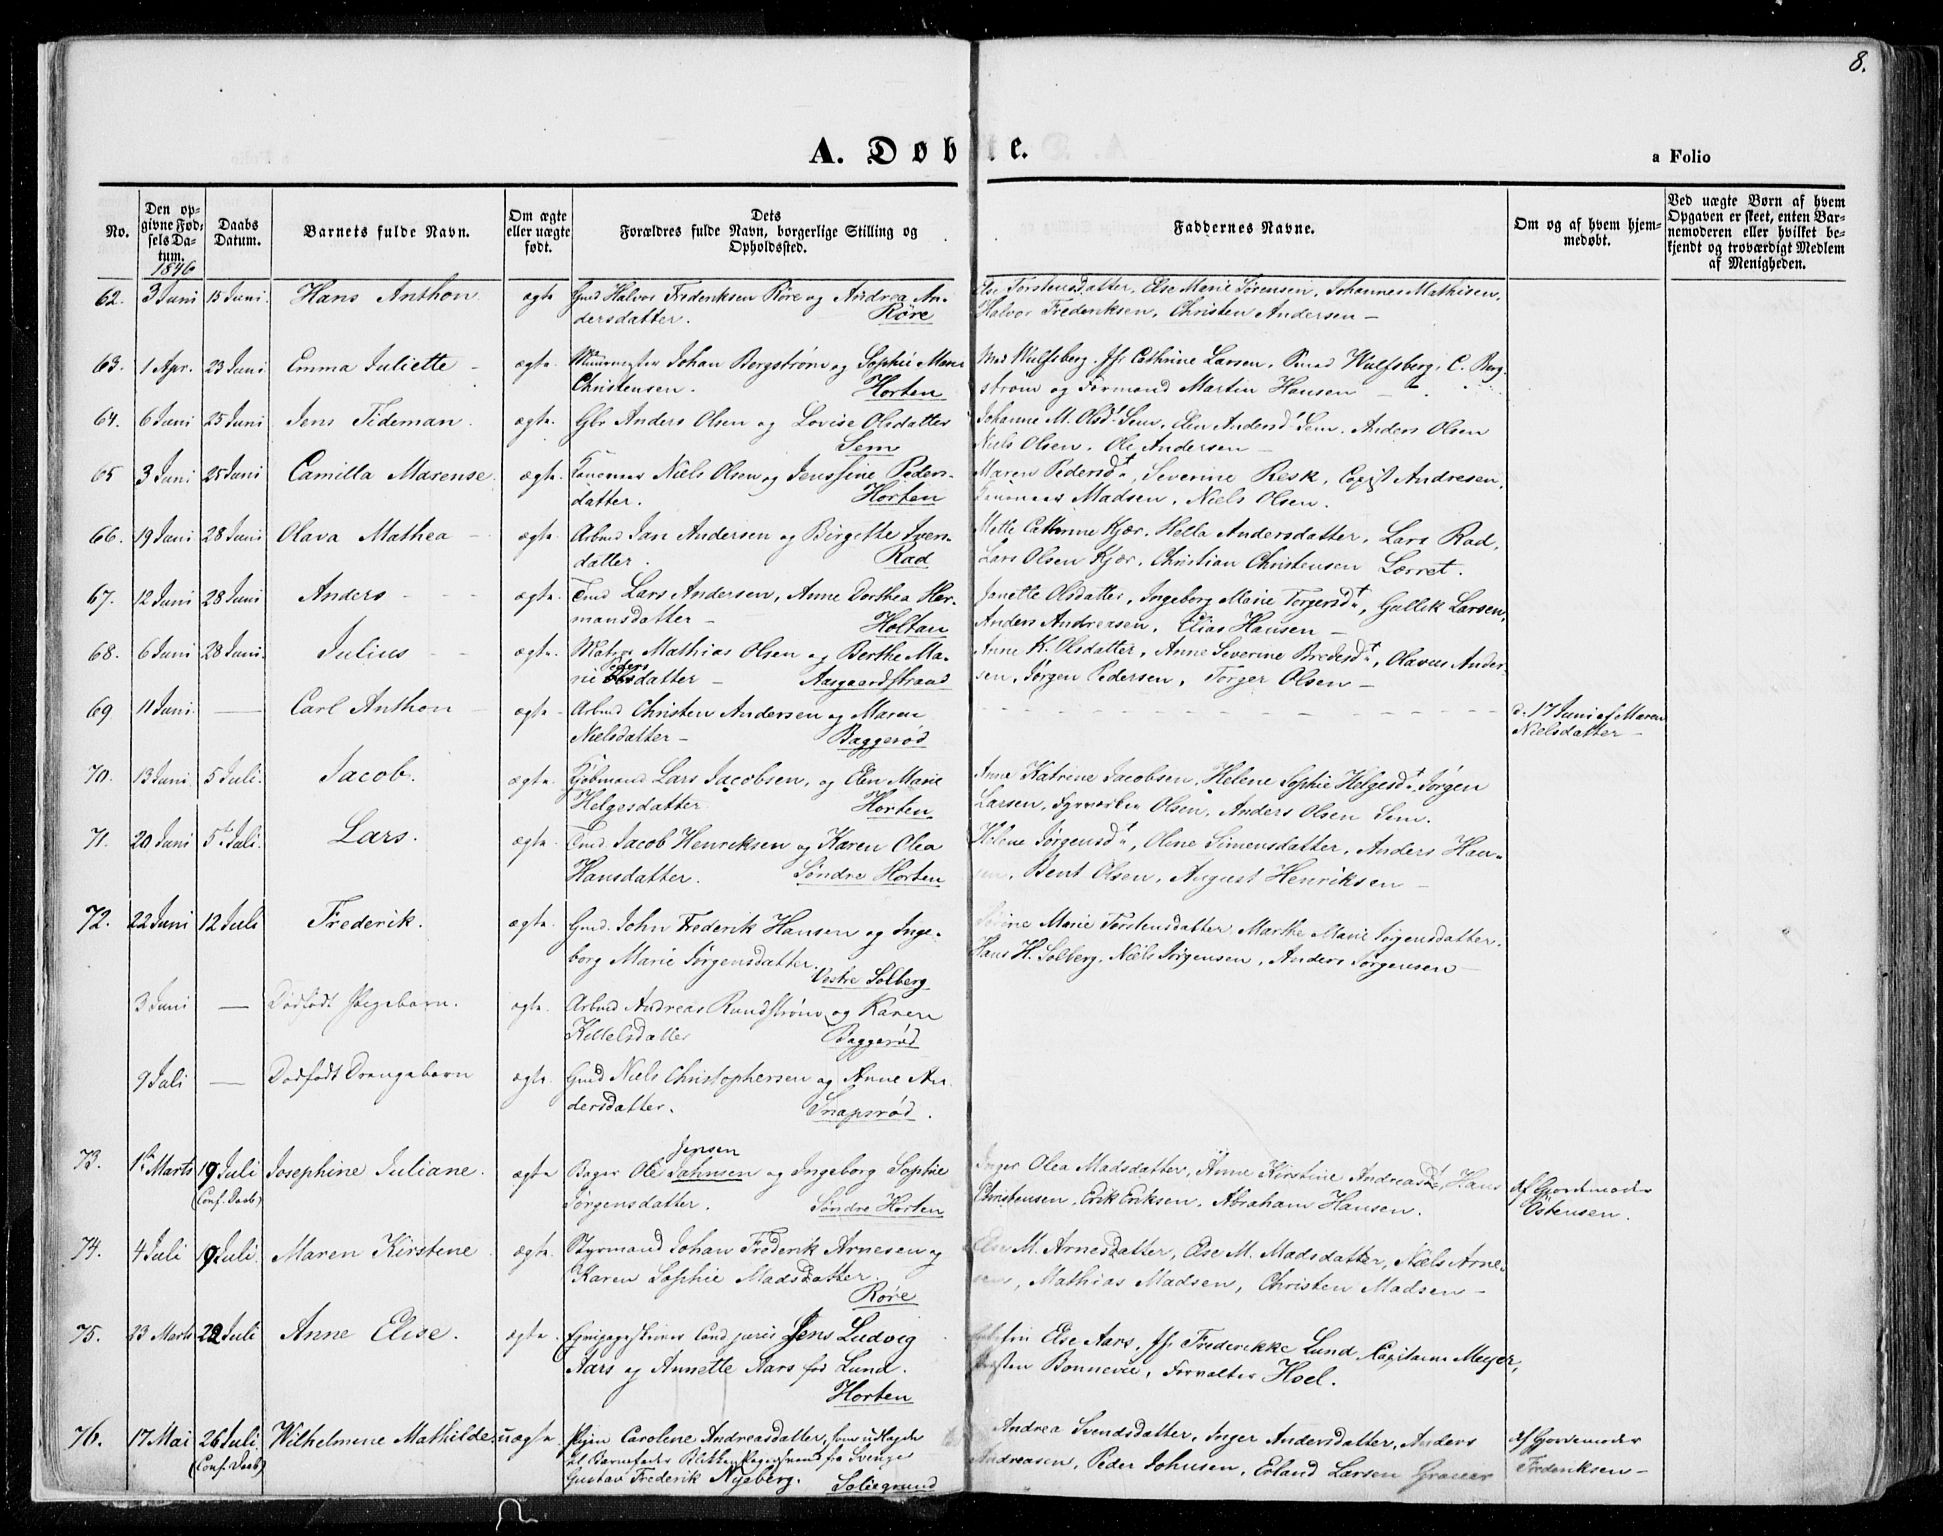 8.
A. Døbte.
a Folio
No.
Den op-
givne Fød-
sels Da-
tum.
Daabs
Datum.
Barnets fulde Navn.
Om ægte
eller uægte
født.
Dets
Forældres fulde Navn, borgerlige Stilling og
Opholdssted.
Faddernes Navne.
Om og af hvem hjem-
medøbt.
Ved uægte Børn af hvem
Opgaven er skeet, enten Bar-
nemoderen eller hvilket be-
kjendt og troværdigt Medlem
af Menigheden.
1846
62. 3 Juni 15 Juni. Hans Anthon ægte Gmd Halvor Frederiksen Røre og Andrea An- Else Torstensdatter, Else Marie Sørensen, Johannes Mathisen,
dersdatter. Røre Halvor Frederiksen, Christen Andersen —
63. 1 Apr. 23 Juni Emma Juliette — ægte Muurmester Johan Bergstrøm og Sophie Marie Mad Wulfsberg, Jfr Cathrine Larsen, Wulfsberg, C. Berg-
Christensen. Horten strøm og Formand Martin Hansen —
64. 6 Juni 25 Juni Jens Tideman. ægte. Gbr Anders Olsen og Lovise Olsdatter Johanne M. Olsd Sem, Elen Andersd Sem, Anders Olsen
Sem Niels Olsen, Ole Andersen —
65 3 Juni 25 Juni Camilla Marense. ægte. Niels Olsen og Jenssine Peders- Maren Pedersdt, Severine Resk, Andresen,
datter. Horten Madsen, Niels Olsen.
66. 19 Juni 28 Juni Olava Mathea — ægte. Arbmd Jan Andersen og Birgitte Iver- Mette Cathrine Kjær, Hella Andersdatter, Lars Rad,
datter. Rad Lars Olsen Kjær, Christian Christensen Lerret.
67. 12 Juni 28 Juni Anders - - - ægte. Tmd Lars Andersen, Anne Dorthea Her- Janette Olsdatter, Ingeborg Marie Torgersdt, Gullik Larsen,
mansdatter — Holtan Anders Andreasen, Elias Hansen —
68. 6 Juni 28 Juni. Julius - - ægte. Matros Mathias Olsen og Berthe Ma- Anne K. Olsdatter, Anne Severine Bredesdt, Olavus Ander-
Peders
rie datter — Aasgaardstrand sen, Jørgen Pedersen, Torger Olsen —
69 11 Juni — Carl Anthon — ægte. Arbmd Christen Andersen og Maren - - - d. 17 Juni af Maren
Nielsdatter — Baggerød Nielsdatter —
70. 13 Juni 5 Juli. Jacob. ægte. Kjøbmand Lars Jacobsen, og Elen Marie Anne Katrine Jacobsen, Helene Sophie Helgesdt, Jørgen
Helgesdatter Horten Larsen, Olsen, Anders Olsen Sem.
71. 20 Juni 5te Juli. Lars. ægte. Tmd Jacob Henriksen og Karen Olea Helene Jørgensdt, Oline Simensdatter, Anders Han-
Hansdatter. Søndre Horten sen, Bent Olsen, August Henriksen —
72. 22 Juni 12 Juli Frederik. ægte. Gmd. John Frederik Hansen og Inge- Marie Torstensdatter, Marthe Marie Jørgensdatter.
borg Marie Jørgensdatter. Vestre Solberg Hans H. Solberg, Niels Jørgensen, Anders Jørgensen —
3 Juni — Dødfødt Pigebarn. ægte. Arbmd Andreas Rundstrøm og Karen
Kittelsdatter Baggerød
9 Juli — Dødfødt Drengebarn ægte. Gmd Niels Christophersen og Anne An-
dersdatter. Snapsrød.
Jensen
73. 1te Marts 19 Juli Josephine Juliane. ægte Bager Ole Jahnsen og Ingeborg Sophie Inger Olea Madsdatter, Anne Kirstine Andreasdt, Hans af Gjordemoder
(Conf. Daab) Jørgensdatter. Søndre Horten Christensen, Erik Eriksen, Abraham Hansen. Østensen.
74. 4 Juli 19 Juli. Maren Kirstine ægte. Styrmand Johan Frederik Arnesen og Else M. Arnesdatter, Else M. Madsdatter, Niels Arne-
Karen Sophie Madsdatter. sen, Mathias Madsen, Christen Madsen —
Røre
75. 23 Marts 22 Juli Anne Elise. ægte. Cand juris Jens Ludvig Else Aars, Jfr Frederikke Lund, Capitain Meyer,
Aars og Annette Aars fød Lund. Bonnevie, Forvalter Hoel.
Horten
76. 17 Mai 26 Juli Wilhelmine Mathilde. uægte Pigen Caroline Andreasdatter, som udlagde Andrea Svendsdatter, Inger Andersdatter, Anders af Gjordemoder
(Conf. Daab) til Barnefader fra Sverige Andreasen, Peder Johnsen, Erland Larsen Frederiksen —
Gustav Frederik Nyeberg.